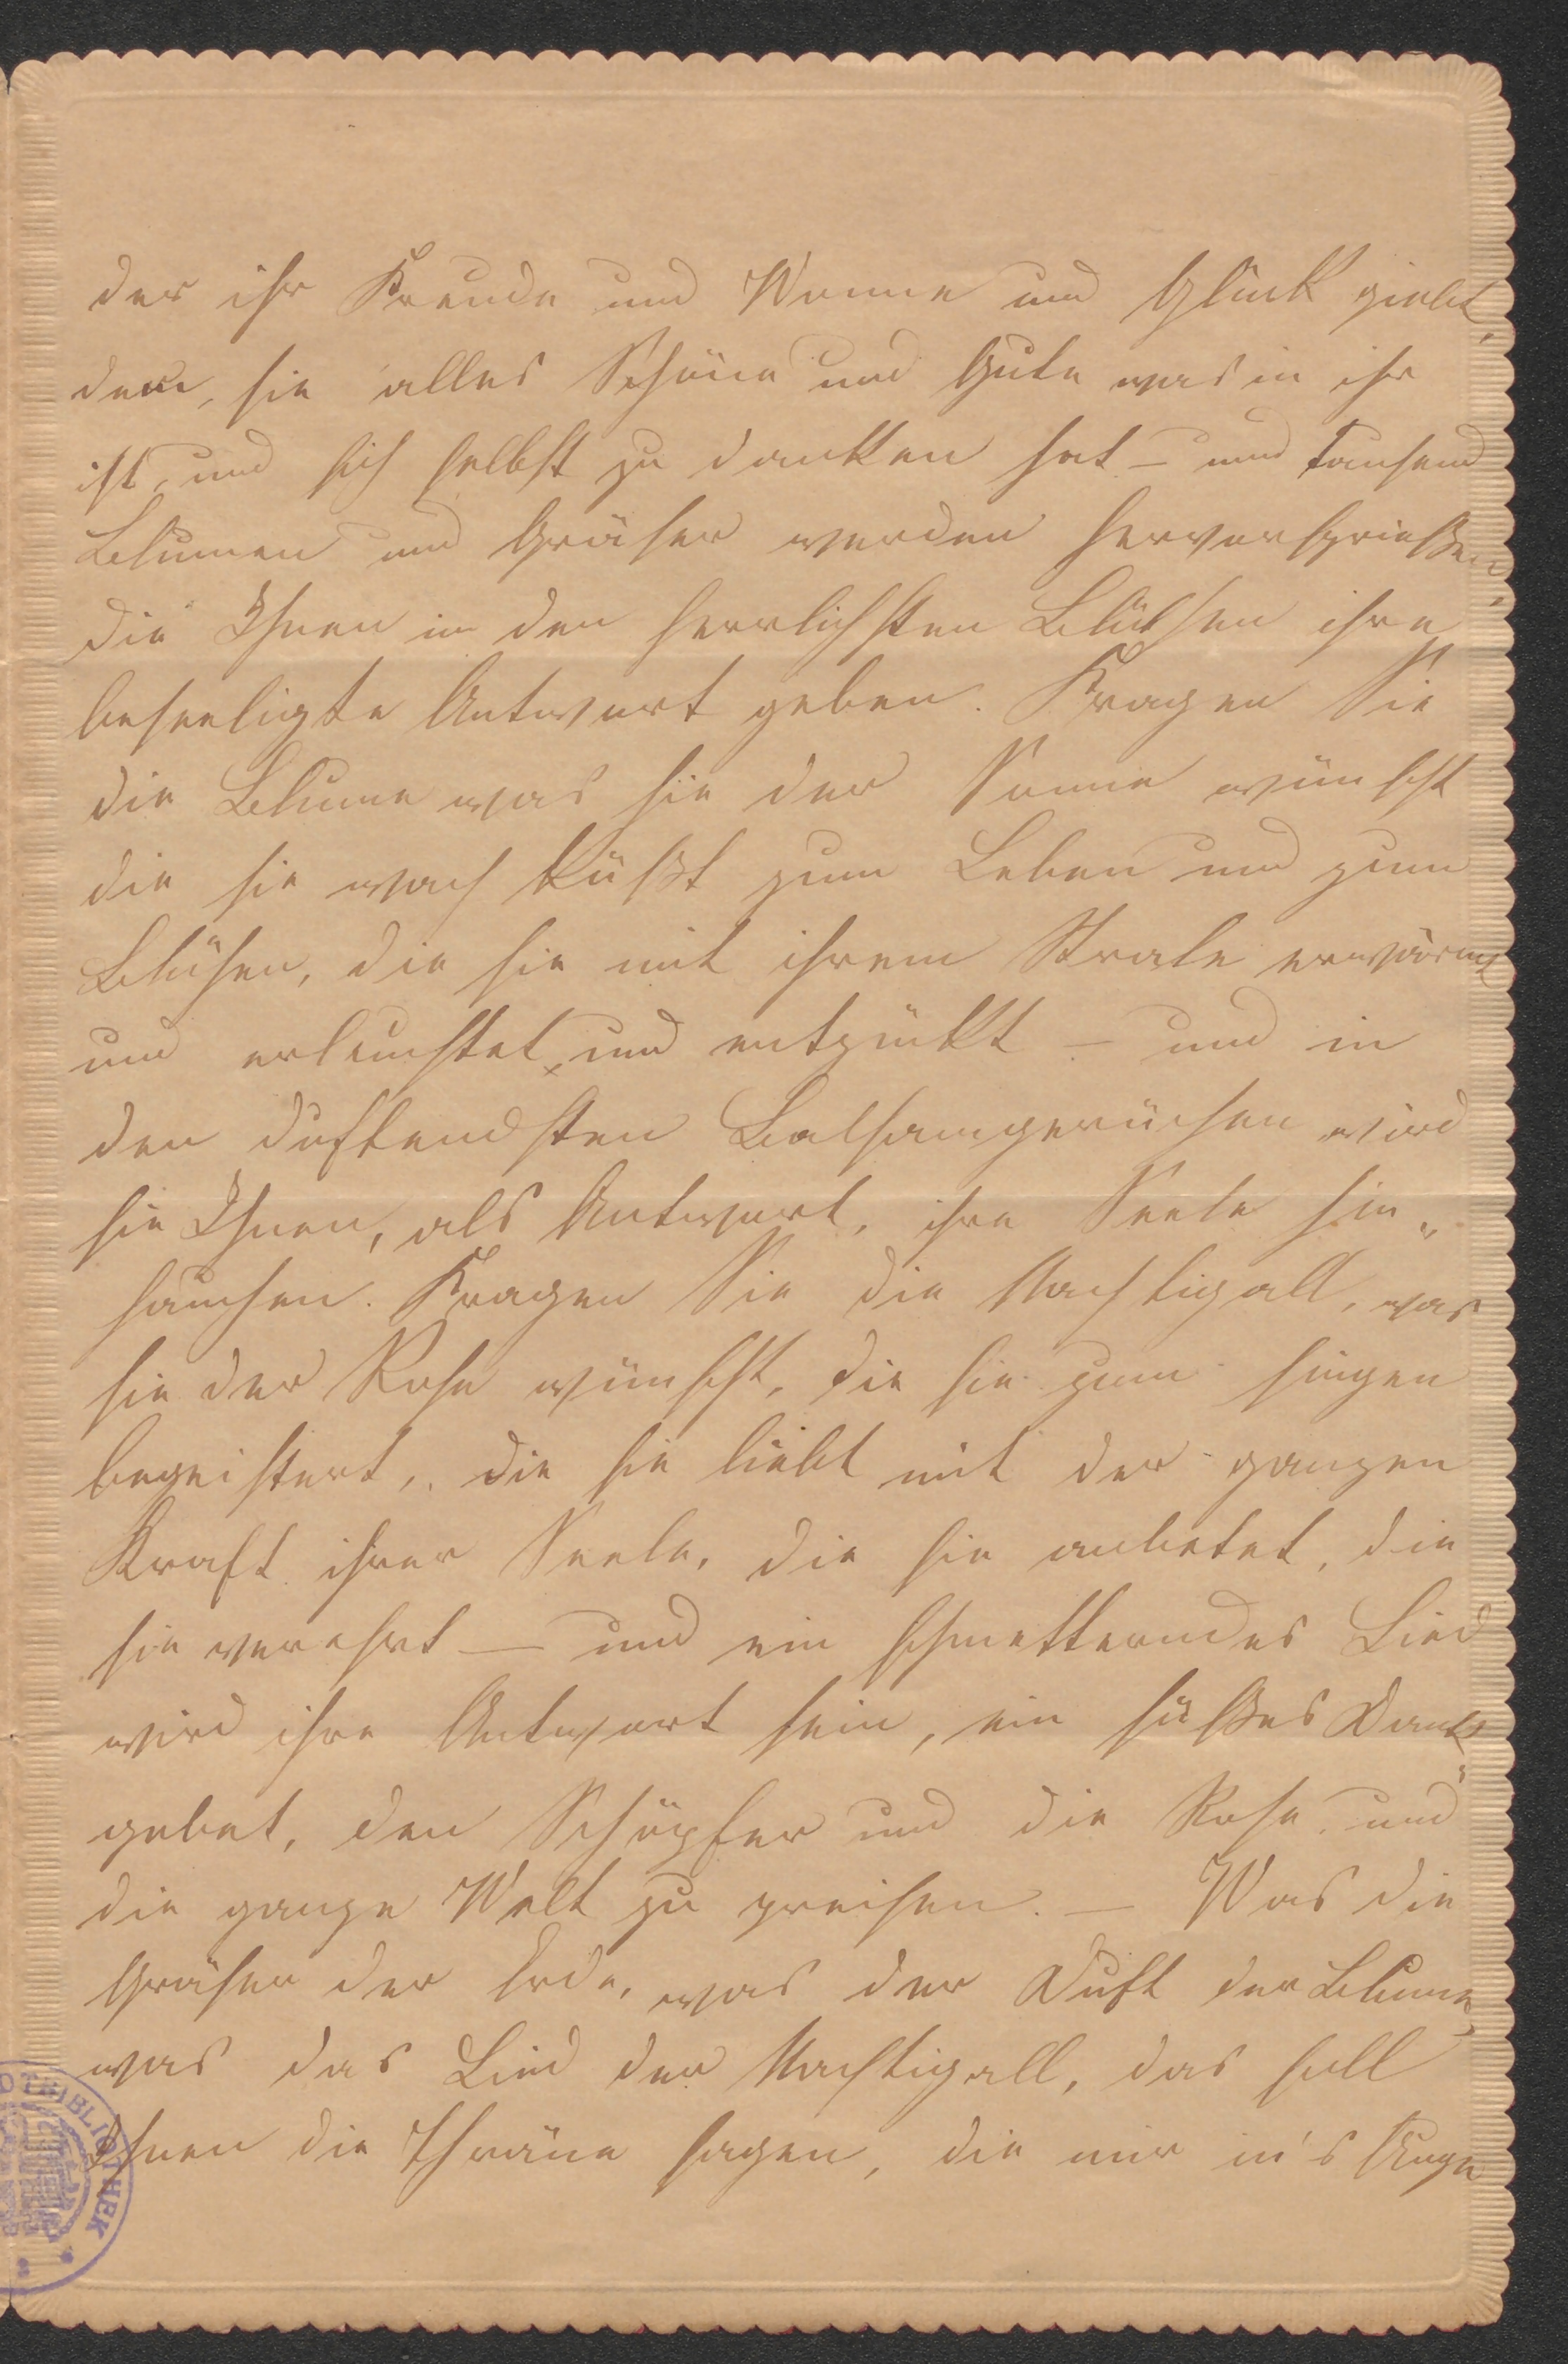 der ihr Freude und Wonne und Glück giebt,
dem, sie alles Schöne und Gute was in ihr
ist, und sich selbst zu danken hat – und tausend
Blumen und Gräser werden hervorsprießen,
die Ihnen in den herrlichsten Blüthen ihre
beseeligte Antwort geben. Fragen Sie
die Blume was sie der Sonne wünscht
die sie wach küßt zum Leben und zum
Blühen, die sie mit ihrem Strale erwärmt
und erleuchtet, und entzückt – und in
den duftendsten Balsamgerüchen wird
sie Ihnen, als Antwort, ihre Seele hin„
hauchen. Fragen Sie die Nachtigall, was
sie der Rose wünscht, die sie zum singen
begeistert, die sie liebt mit der ganzen
Kraft ihrer Seele, die sie anbetet, die
sie verehrt – und ein schmetterndes Lied
wird ihre Antwort sein, ein süßes Dank„
gebet, den Schöpfer und die Rose und
die ganze Welt zu preisen. – Was die
Gräser der Erde, was der Duft der Blume,
was das Lied der Nachtigall, das soll
Ihnen die Thräne sagen, die mir in's Auge